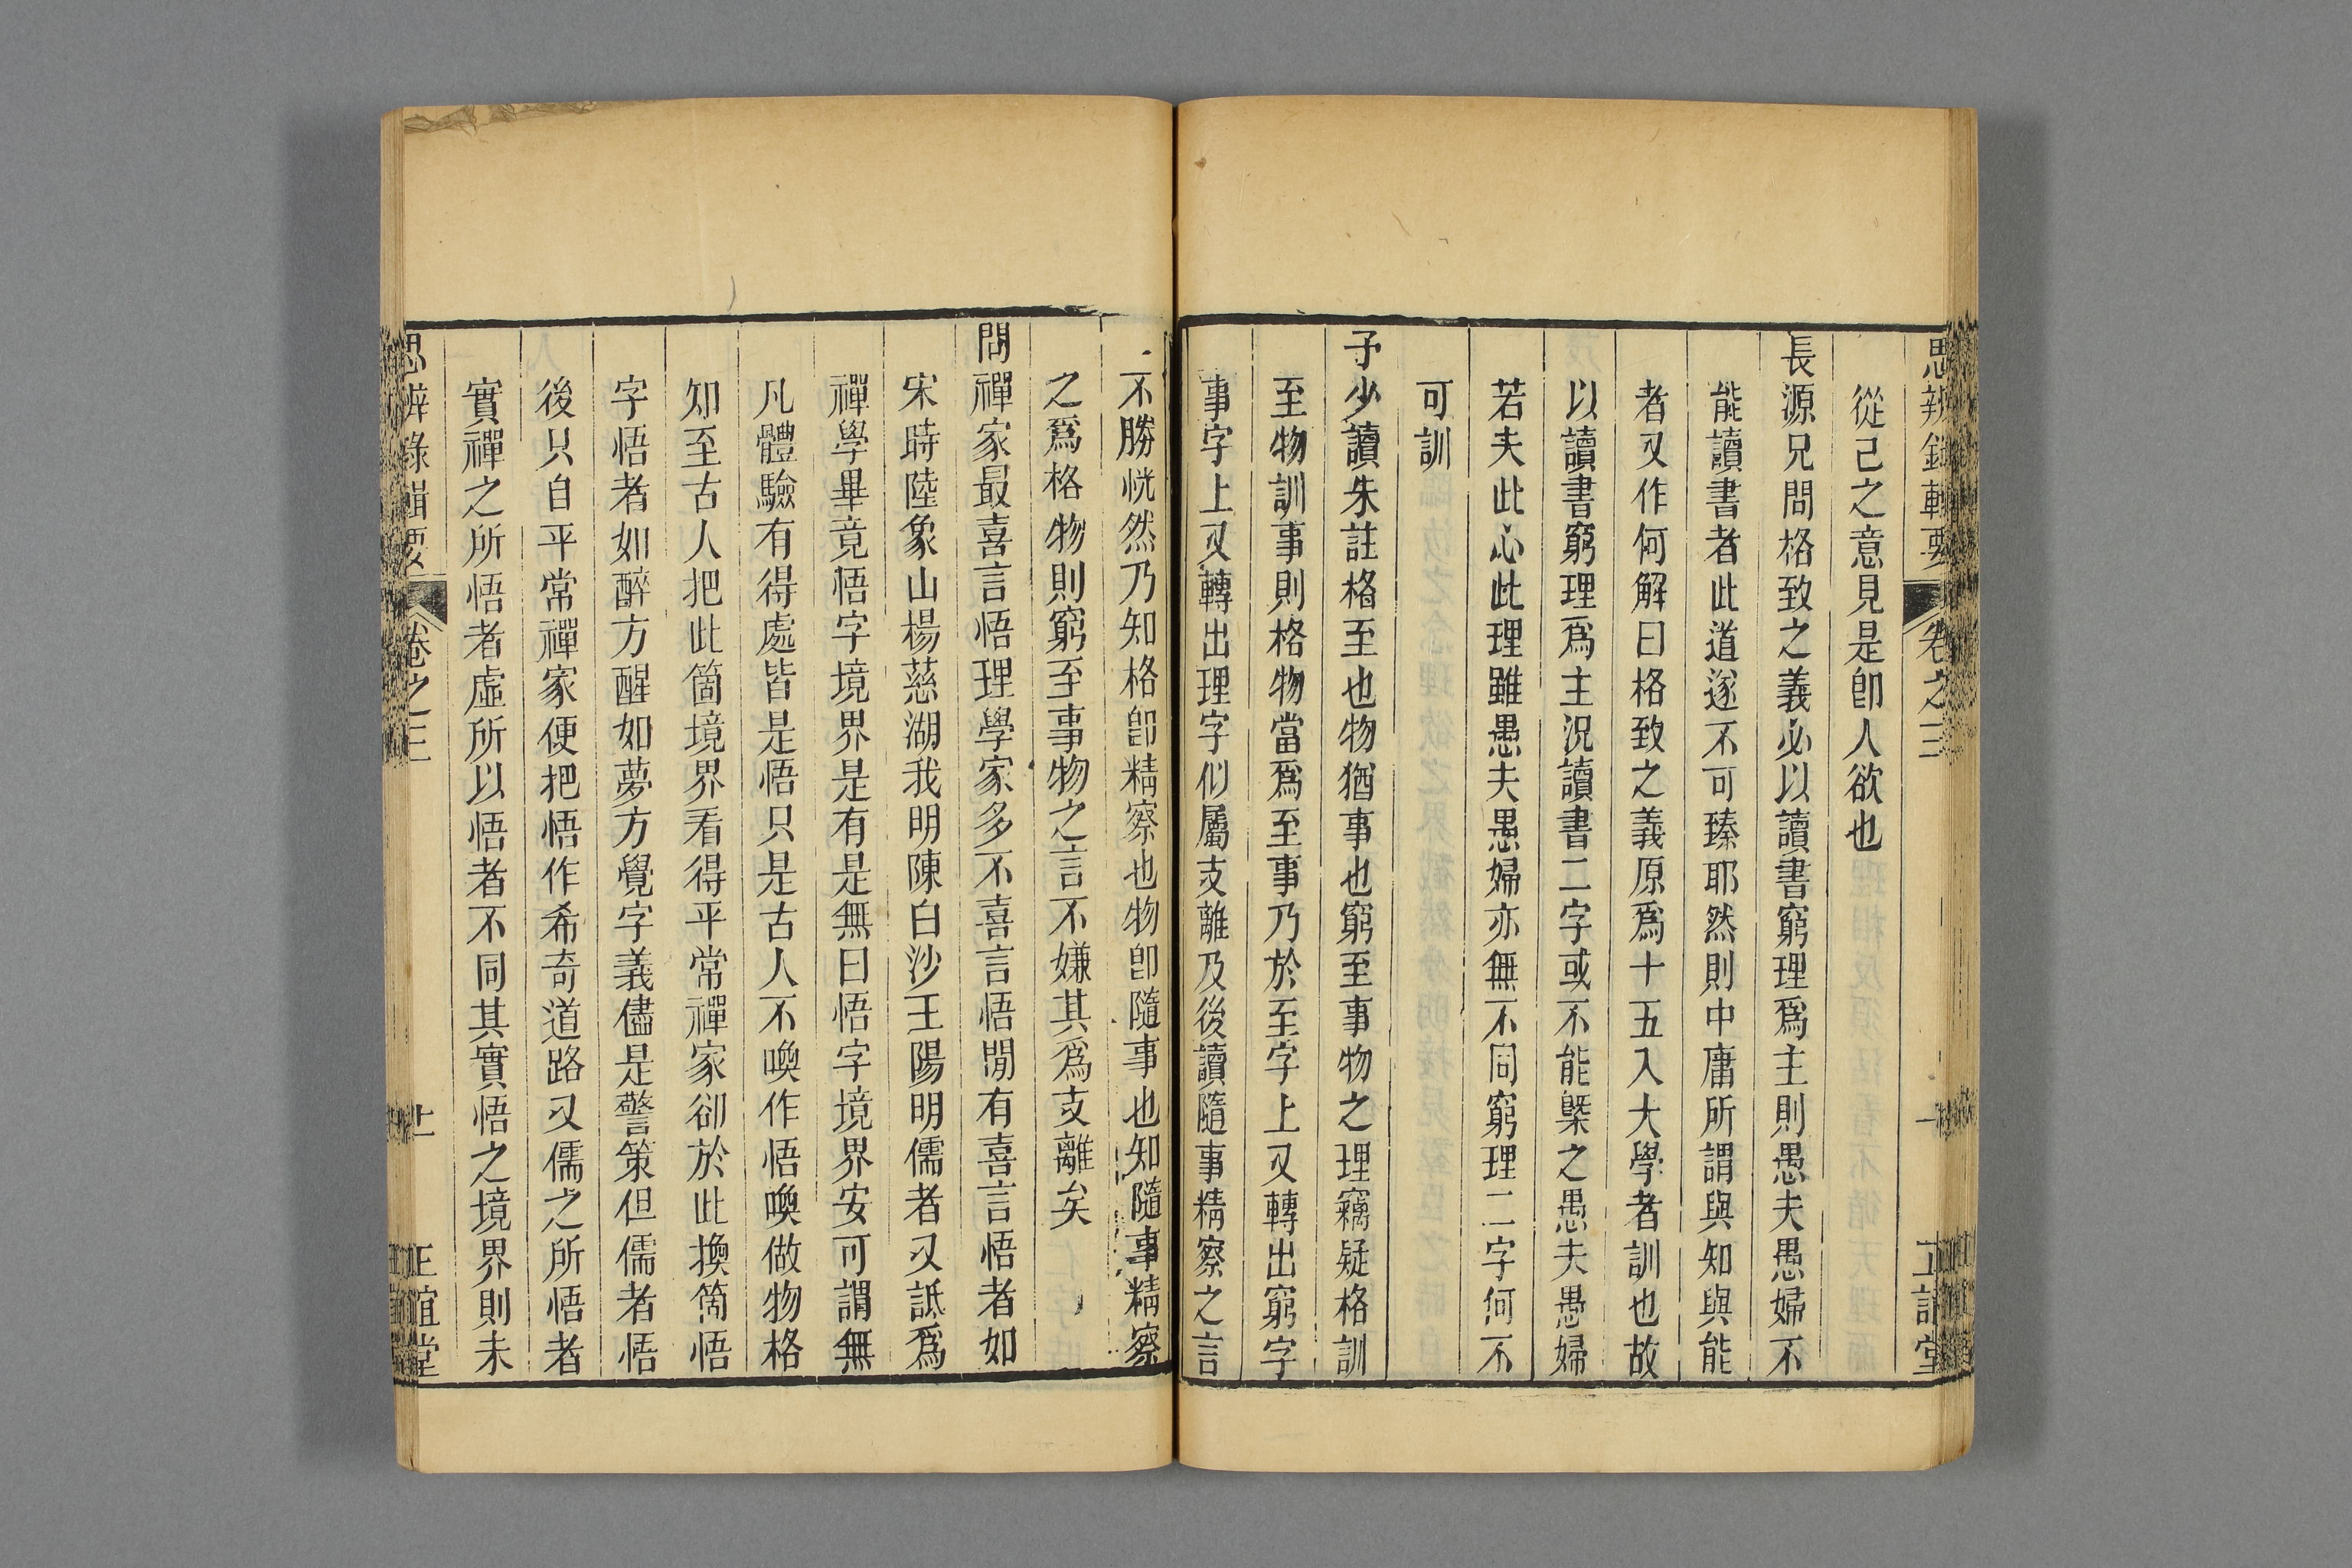 思辨錄輯要 卷之三 正誼堂
從己之意見是卽人欲也
長源兄問格致之義必以讀書窮理爲主則愚夫愚婦不
能讀書者此道遂不可臻耶然則中庸所謂與知與能
者又作何解曰格致之義原爲十五入大學者訓也故
以讀書窮理爲主況讀書二字或不能槩之愚夫愚婦
若夫此心此理雖愚夫愚婦亦無不同窮理二字何不
可訓
予少讀朱註格至也物猶事也窮至事物之理竊疑格訓
至物訓事則格物當爲至事乃於至字上又轉出窮字
事字上又轉出理字似屬支離及後讀隨事精察之言
不勝恍然乃知格卽精察也物卽隨事也知隨事精察
之爲格物則窮至事物之言不嫌其爲支離矣
問禪家最喜言悟理學家多不喜言悟閒有喜言悟者如
宋時陸象山楊慈湖我明陳白沙王陽明儒者又詆爲
禪學畢竟悟字境界是有是無曰悟字境界安可謂無
凡體驗有得處皆是悟只是古人不喚作悟喚做物格
知至古人把此箇境界看得平常禪家卻於此換箇悟
字悟者如醉方醒如夢方覺字義儘是警策但儒者悟
後只自平常禪家便把悟作希奇道路又儒之所悟者
實禪之所悟者虛所以悟者不同其實悟之境界則未
思辨錄輯要 卷之三 廿 正誼堂